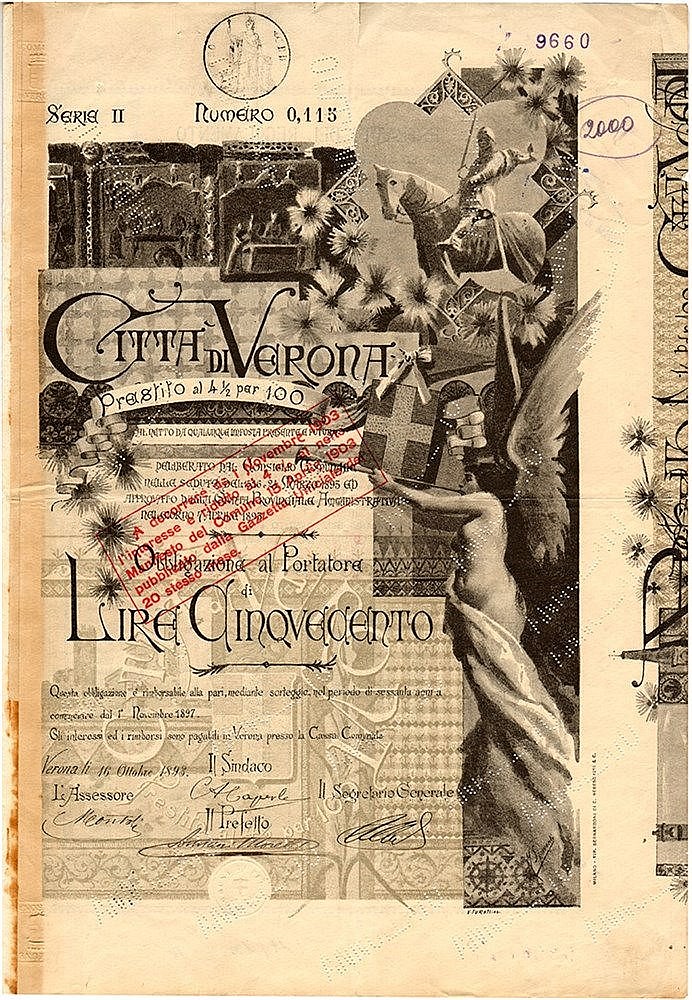 9660
SERIE II NUMERO 0,115
2000
CITTÀ DI VERONA
Prestito al 4 ½ per 100
ESENTE DA QUALUNQUE IMPOSTA PRESENTE E FUTURA
DELIBERATO DAL CONSIGLIO COMUNALE
NELLE SEDUTE DELLI 26, 31 MARZO 1893 ED
APPROVATO DALLA GIUNTA PROVINCIALE AMMINISTRATIVA
NEL GIORNO 7 APRILE 1893
A decorrere dal 1 Novembre 1903
l'interesse è ridotto al 4 % al netto
Manifesto del Comune 15 Aprile 1903
pubblicato dalla Gazzetta Ufficiale del
20 stesso mese.
Obbligazione al Portatore
di
LIRE CINQVECENTO
Questa obbligazione è rimborsabile alla pari, mediante sorteggio, nel periodo di sessanta anni a
cominciare dal 1° Novembre 1897.
Gli interessi ed i rimborsi sono pagabili in Verona presso la Cassa Comunale
Verona li 16 Ottobre 1893. Il Sindaco
L'Assessore Il Segretario Generale
Il Prefetto